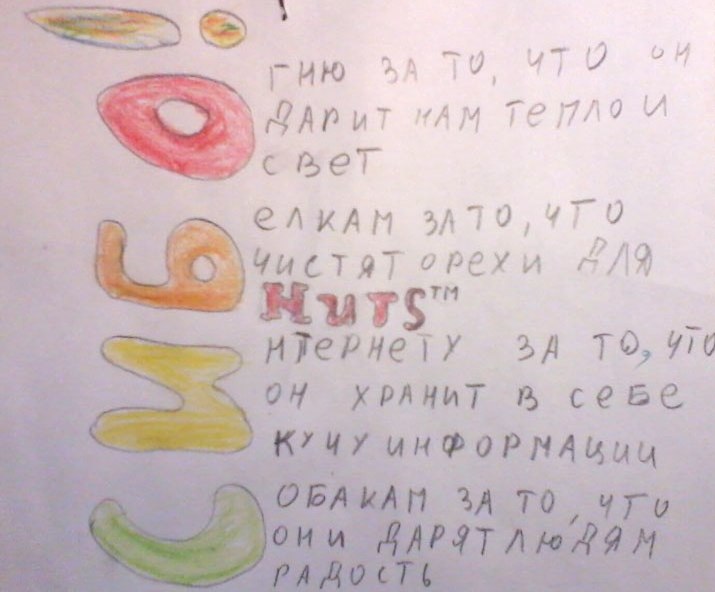 СИБО!
ГНЮ ЗА ТО, ЧТО ОН
ДАРИТ НАМ ТЕПЛО И
СВЕТ
ЕЛКАМ ЗА ТО, ЧТО
ЧИСТЯТ ОРЕХИ ДЛЯ
Nuts™
НТЕРНЕТУ ЗА ТО, ЧТО
ОН ХРАНИТ В СЕБЕ
КУЧУ ИНФОРМАЦИИ
ОБАКАМ ЗА ТО, ЧТО
ОНИ ДАРЯТ ЛЮДЯМ
РАДОСТЬ